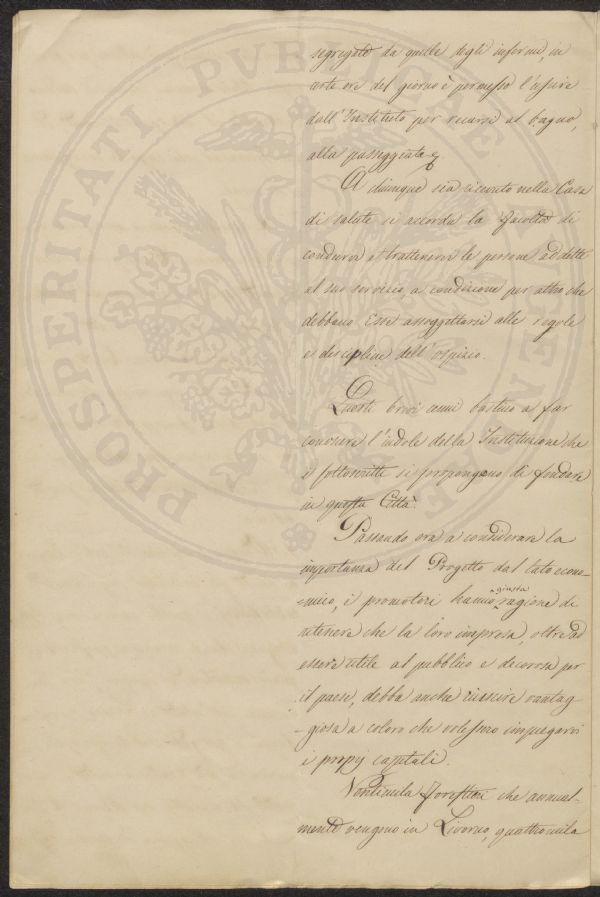 segregato da quelle degli infermi, in
certe ore del giorno è permesso l'uscire
dall'Instituto per recarsi al bagno,
alla passeggiata &
A chiunque sia ricevuto nella Casa
di salute si accorda la facoltà di
condurvi e trattenervi le persone addette
al suo servizio, a condizione per altro che
debbano Esse assoggettarsi alle regole
e discipline dell'ospizio.
Questi brevi cenni bastino a far
conoscere l'indole della Instituzione che
i sottoscritti si propongono di fondare
in questa Città.
Passando ora a considerare la
importanza del Progetto dal lato econo-
=mico, i promotori hanno giusta ragione di
ritenere che la loro impresa, oltre ad
essere utile al pubblico e decorosa per
il paese, debba anche riuscire vantag-
=giosa a coloro che volessero impiegarvi
i proprj capitali.
Ventimila forestieri che annual-
mente vengono in Livorno, quattromila
PROSPERITATI PVBLICAE